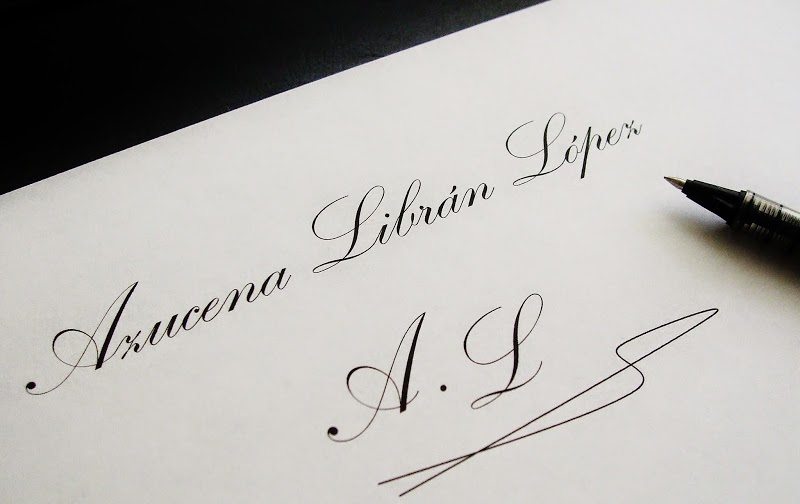 Azucena Librán López
A. L